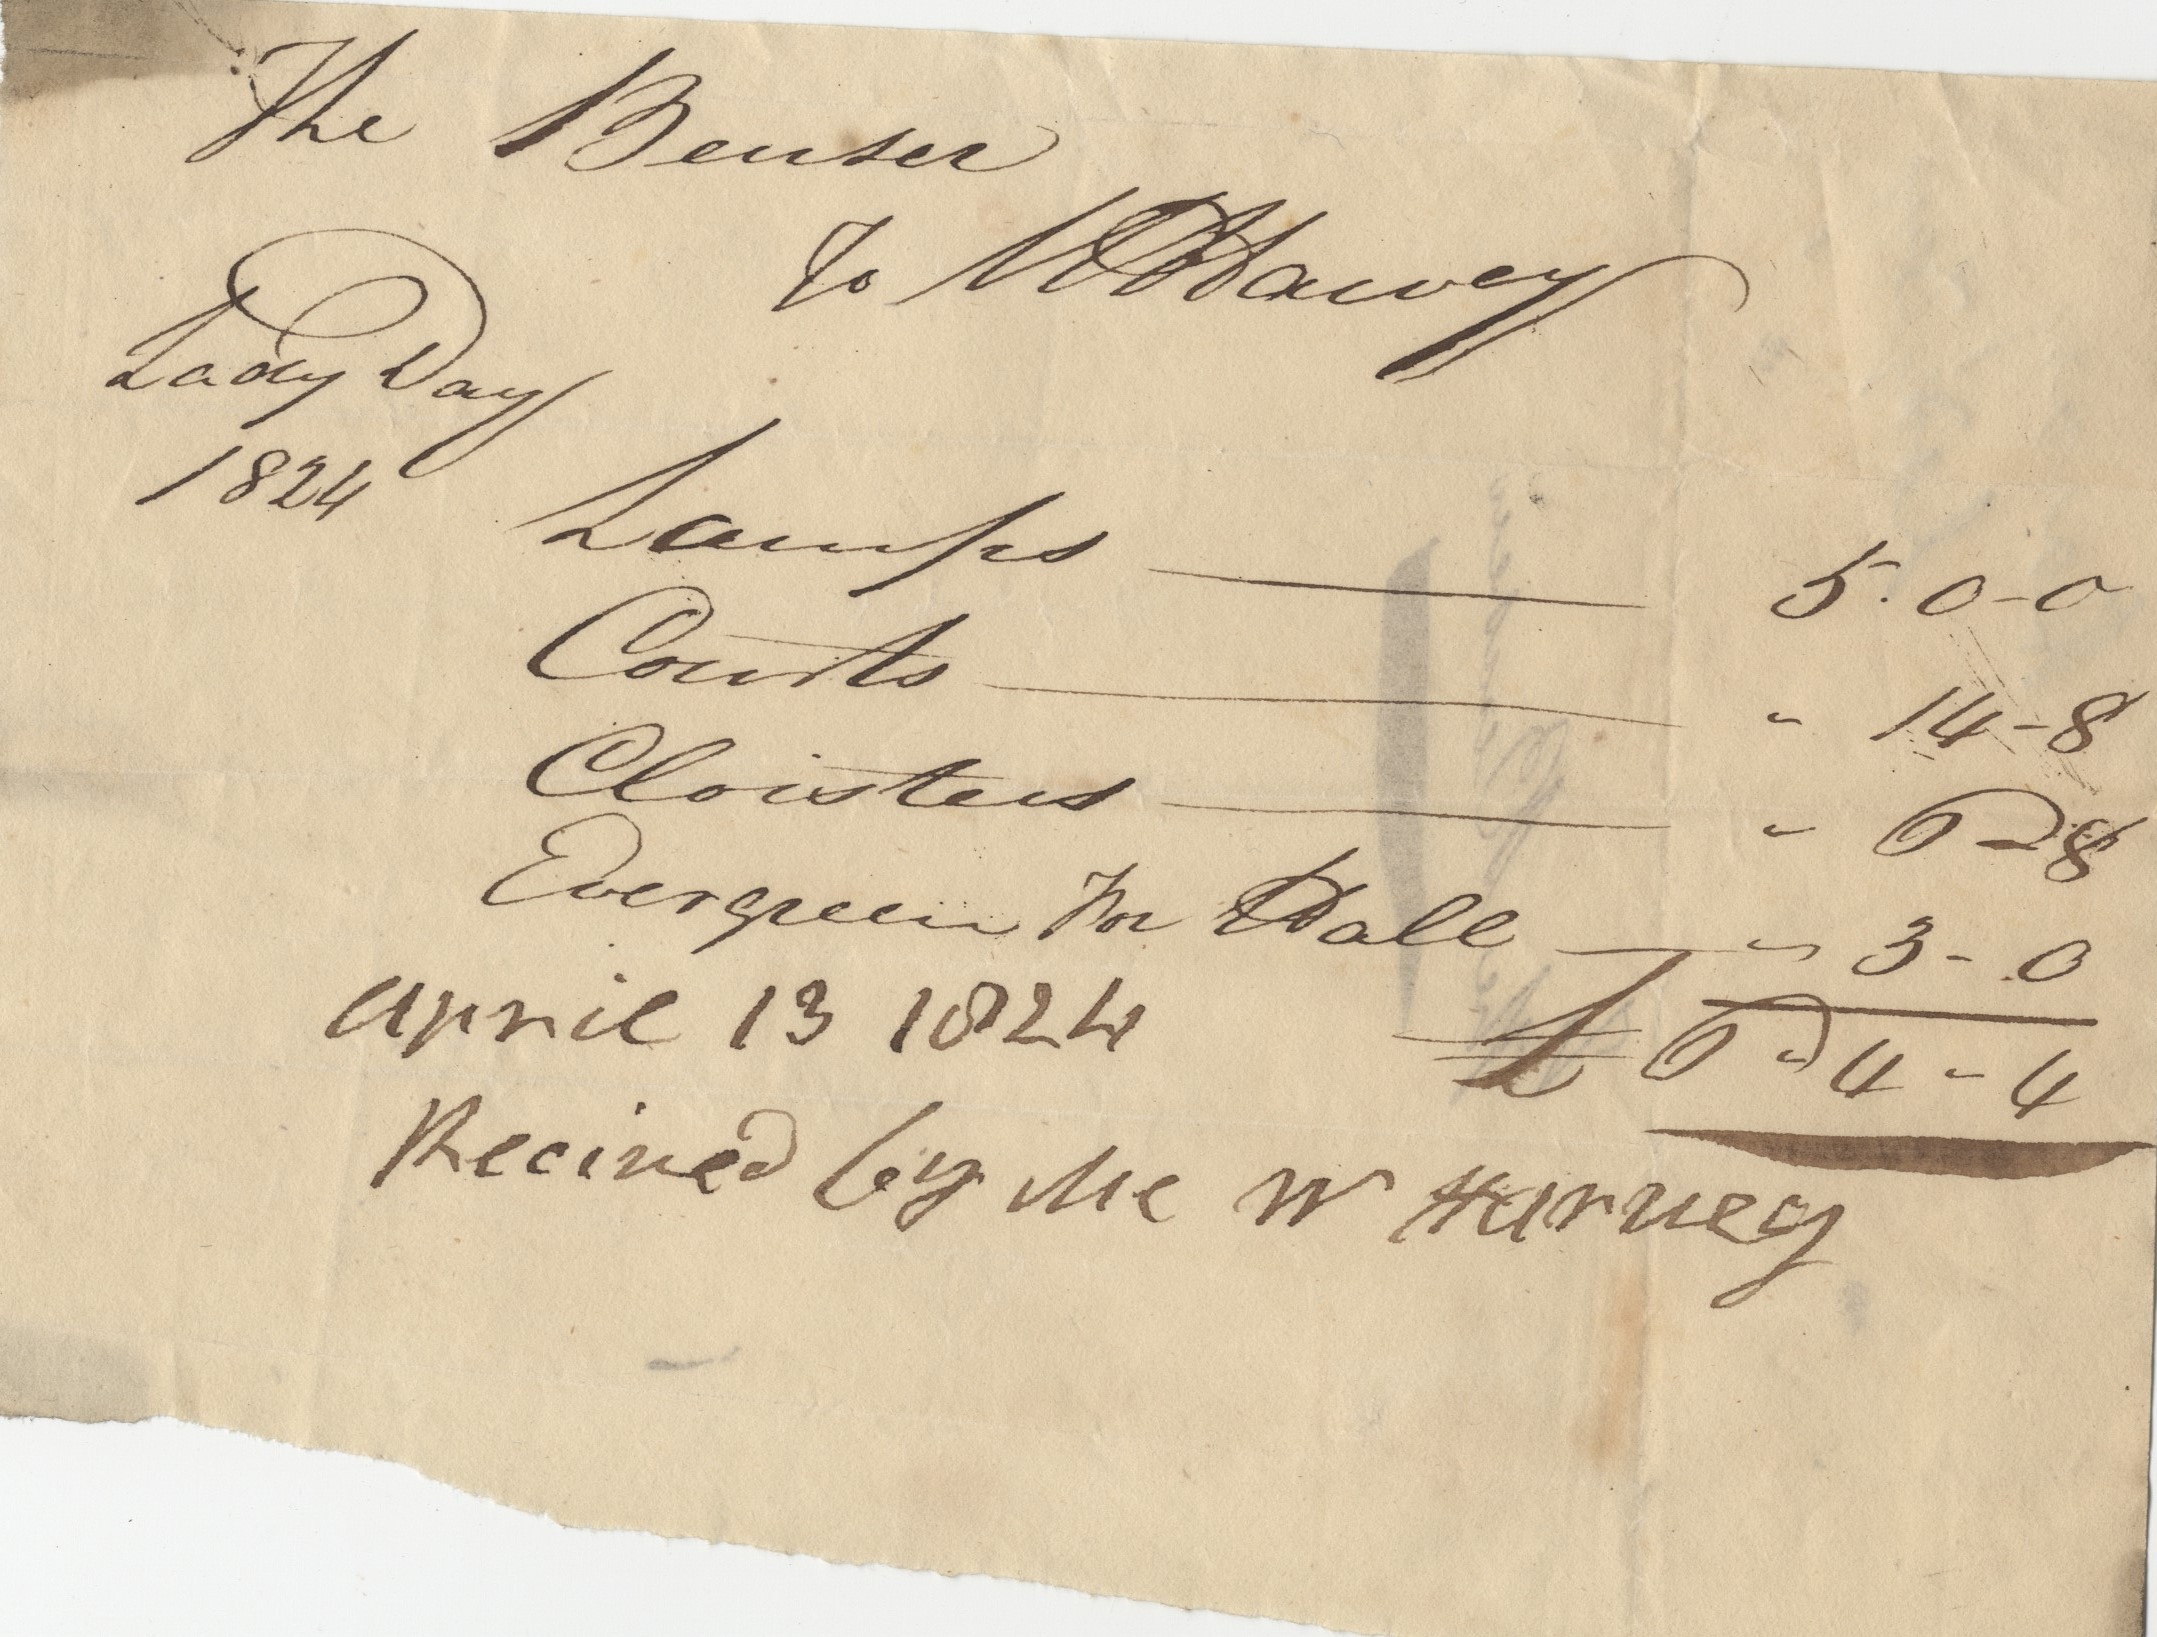 The Benser
To W Harvey
Lady Day
1824
Lamps — 5.0-0
Courts — " 14-8
Cloisters — " 6-8
Evergreen For Hall — " 3-0
£ 6-4-4
April 13 1824
Recived by Me W Harvey